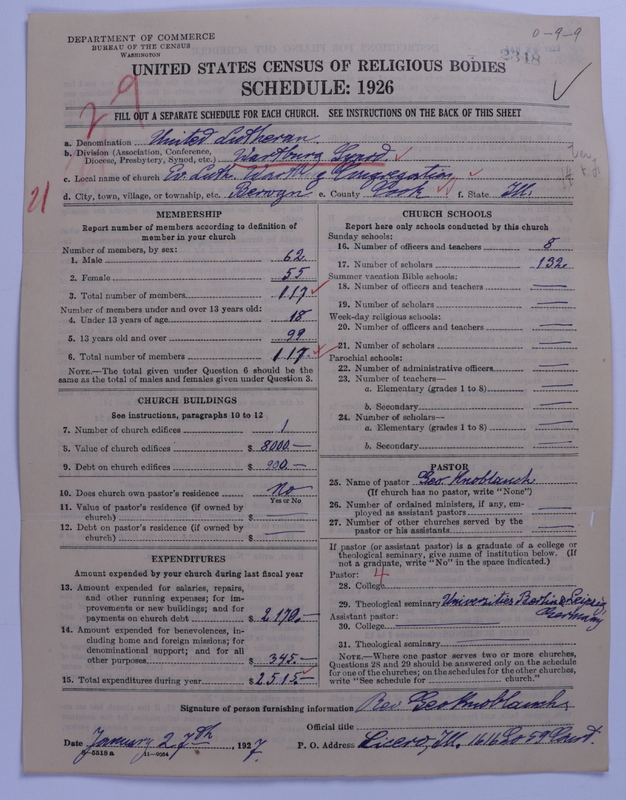 DEPARTMENT OF COMMERCE
BUREAU OF THE CENSUS
WASHINGTON
0-9-9
2348
UNITED STATES CENSUS OF RELIGIOUS BODIES
SCHEDULE: 1926
29
FILL OUT A SEPARATE SCHEDULE FOR EACH CHURCH. SEE INSTRUCTIONS ON THE BACK OF THIS SHEET
a. Denomination United Lutheran
b. Division (Association, Conference, Diocese, Presbytery, Synod, etc.) Wartburg Synod
c. Local name of church Ev. Luth. Congregation
21
d. City, town, village, or township, etc. Berwyn e. County Cook f. State Ill.
MEMBERSHIP
Report number of members according to definition of member in your church
Number of members, by sex:
1. Male 62
2. Female 55
3. Total number of members 117
Number of members under and over 13 years old:
4. Under 13 years of age 18
5. 13 years old and over 99
6. Total number of members 117
NOTE.—The total given under Question 6 should be the same as the total of males and females given under Question 3.
CHURCH BUILDINGS
See instructions, paragraphs 10 to 12
7. Number of church edifices 1
8. Value of church edifices $ 8000.—
9. Debt on church edifices $ 900.—
10. Does church own pastor's residence No
Yes or No
11. Value of pastor's residence (if owned by church) $
12. Debt on pastor's residence (if owned by church) $ —
EXPENDITURES
Amount expended by your church during last fiscal year
13. Amount expended for salaries, repairs, and other running expenses; for improvements or new buildings; and for payments on church debt $ 2170.—
14. Amount expended for benevolences, including home and foreign missions; for denominational support; and for all other purposes $ 345.—
15. Total expenditures during year $ 2515.—
CHURCH SCHOOLS
Report here only schools conducted by this church
Sunday schools:
16. Number of officers and teachers 8
17. Number of scholars 132
Summer vacation Bible schools:
18. Number of officers and teachers —
19. Number of scholars —
Week-day religious schools:
20. Number of officers and teachers —
21. Number of scholars —
Parochial schools:
22. Number of administrative officers —
23. Number of teachers—
a. Elementary (grades 1 to 8) —
b. Secondary —
24. Number of scholars—
a. Elementary (grades 1 to 8) —
b. Secondary —
PASTOR
25. Name of pastor Geo. Knoblauch
(If church has no pastor, write "None")
26. Number of ordained ministers, if any, employed as assistant pastors —
27. Number of other churches served by the pastor or his assistants —
If pastor (or assistant pastor) is a graduate of a college or theological seminary, give name of institution below. (If not a graduate, write "No" in the space indicated.)
Pastor: 4
28. College
29. Theological seminary Universities Berlin & Leipzig Germany
Assistant pastor:
30. College
31. Theological seminary
NOTE.—Where one pastor serves two or more churches, Questions 28 and 29 should be answered only on the schedule for one of the churches; on the schedules for the other churches, write "See schedule for church."
Signature of person furnishing information Rev. Geo Knoblauch
Official title
Date January 27th, 1927 P. O. Address Cicero, Ill. 1616 So 59 Court.
8-5519 a 11-9034